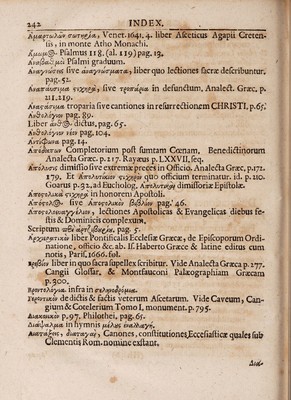 242 INDEX.
Ἁμαρτωλῶν σωτηρία, Venet. 1641. 4. liber Asceticus Agapii Creten-
sis, in monte Atho Monachi.
Ἄμωμος Psalmus 118. (al. 119) pag. 13.
Ἀναβαθμοὶ Psalmi graduum.
Ἀναγνώσεις sive ἀναγνώσματα, liber quo lectiones sacræ describuntur.
pag. 52.
Ἀναπαύσιμα στιχηρὰ, sive τροπάρια in defunctum, Analect. Græc. p.
211. 219.
Ἀναστάσιμα troparia sive cantiones in resurrectionem CHRISTI, p. 65.
Ἀνθολόγιον pag. 89.
Liber dictus, pag. 65.
Ἀνθολόγιον νέον pag. 104.
Ἀντίφωνα pag. 14.
Ἀπόδειπνον Completorium post sumtam Cœnam, Benedictinorum
Analecta Græc. p. 217. Rayæus p. LXXVII, seq.
Ἀπόλυσις dimissio sive extremæ preces in Officio. Analecta Græc, p. 172.
179. Et Ἀπολυτίκιον στιχηρὸν quo officium terminatur. id. p. 110.
Goarus p. 32, ad Eucholog. Ἀπολυτικαὶ dimissoriæ Epistolæ.
Ἀποστολικὰ στιχηρὰ in honorem Apostoli.
Ἀπόστολος sive Ἀποστολικὸν βιβλίον pag. 46.
Ἀποστολοευαγγέλιον, lectiones Apostolicas & Evangelicas diebus fe-
stis & Dominicis complexum.
Scriptum pag. 5.
Ἀρχιερατικὸν liber Pontificalis Ecclesiæ Græcæ, de Episcoporum Ordi-
natione, officio &c. ab Is. Haberto Græce & latine editus cum
notis, Paris, 1666. fol.
Βρεβίον liber in quo sacra supellex scribitur. Vide Analecta Græca p. 277.
Cangii Glossar. & Montfauconi Palæographiam Græcam
p. 300.
infra in
Γεροντικὸν de dictis & factis veterum Ascetarum. Vide Caveum, Can-
gium & Cotelerium Tomo I, monument. p. 795.
Διακονικὸν p. 97. Philothei, pag. 65.
Διάψαλμα in hymnis μέλους ἐναλλαγή.
Διατάξεις, διαταγαὶ, Canones, constitutiones, Ecclesiasticæ quales sub
Clementis Rom. nomine exstant.
Διά-